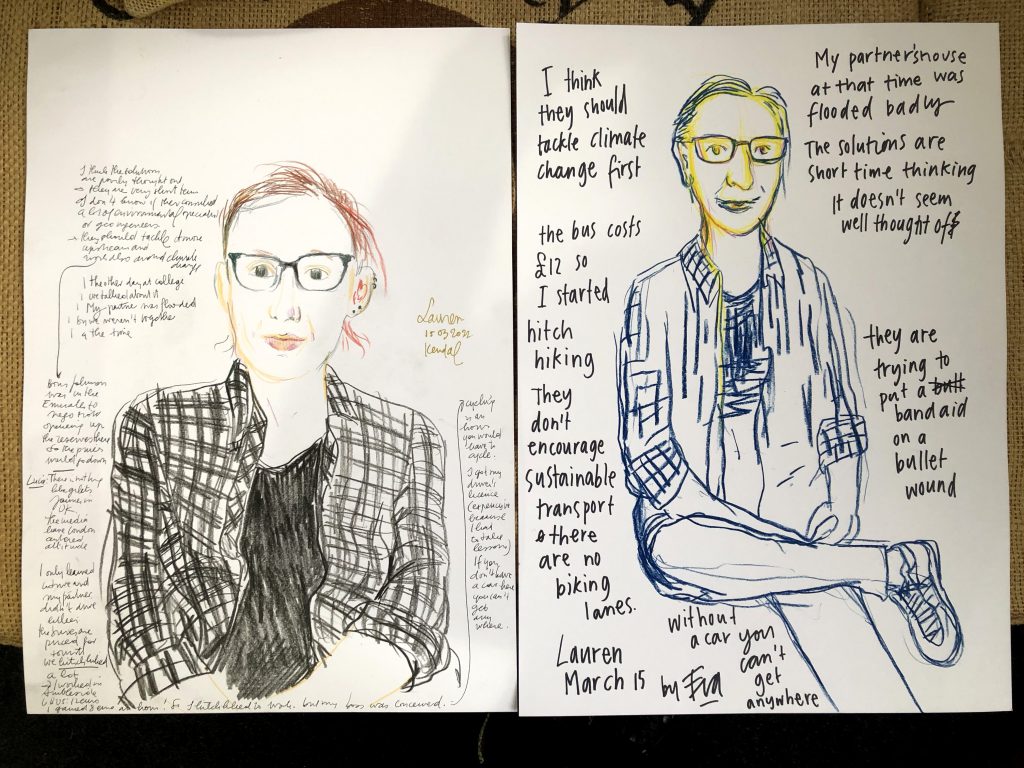 I think the solutions
are poorly thought out
→ they are very short term
I don't know if they consulted
a lot of environmental specialist
or geo engineers
→ they should tackle it more
upstream and
more also around climate
change
the other day at college
we talked about it
My partner was flooded
but we weren't together
at the time
Boris Johnson
was in the
Emirates to
negotiate
opening up
the reserves there
so the prices
would go down
There is nothing
like gilets
jaunes in
UK.
the media
have London
centered
attitude
I only learned
and
my partner
didn't drive
either
the buses are
priced for
tourists
we hitchhiked
a lot
I worked in
Ambleside
I gained 8 an hour! So I hitchhiked to work. but my boss was concerned.
Lauren
15 03 2022
Kendal
cycling
is an
hour
you would
have to
cycle.
I got my
driver's
licence
(expensive
because
I had
to take
lessons)
If you
don't have
a car here
you can't
get
any
where.
I think
they should
tackle climate
change first
the bus costs
£12 so
I started
hitch
hiking
They
don't
encourage
sustainable
transport
& there
are no
biking
lanes.
Lauren
March 15
by Eva
My partner's house
at that time was
flooded badly
The solutions are
short time thinking
It doesn't seem
well thought off
they are
trying to
put a
bandaid
on a
bullet
wound
without
a car you
can't
get
anywhere